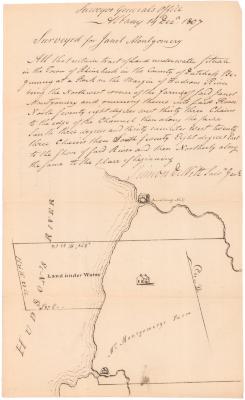 Surveyor Generals Office
Albany 19 Decr 1807
Surveyed for Janet Montgomery
All that certain tract of Land underwater situate
in the Town of Rhinebeck in the County of Dutchess Be-
ginning at a Stake on the Margin of Hudsons River
being the Northwest corner of the Farm of said Janet
Montgomery and running thence into said River
North Seventy eight degrees west thirty three Chains
to the edge of the Channel then along the same
South three degrees and thirty minutes West twenty
three Chains then South Seventy Eight degrees East
to the shore of said River and then Northerly along
the same to the place of beginning
Simeon De Witt Surv Genl
HUDSON'S RIVER
Land under Water
Mrs Montgomerys Farm